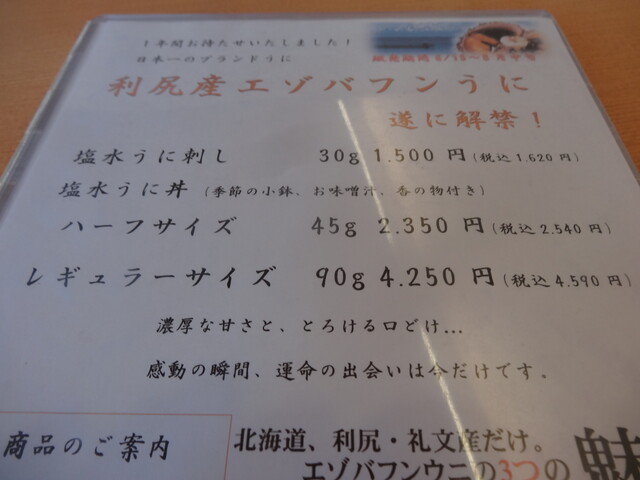 1年間お待たせいたしました!
日本一のブランドうに
販売期間6/15~8月中旬
利尻産エゾバフンうに
遂に解禁!
塩水うに刺し 30g 1.500 円(税込1.620円)
塩水うに丼 (季節の小鉢、お味噌汁、香の物付き)
ハーフサイズ 45g 2.350 円(税込2.540円)
レギュラーサイズ 90g 4.250 円(税込4.590円)
濃厚な甘さと、とろける口どけ...
感動の瞬間、運命の出会いは今だけです。
商品のご案内
北海道、利尻・礼文産だけ。
エゾバフンウニの3つの
魅